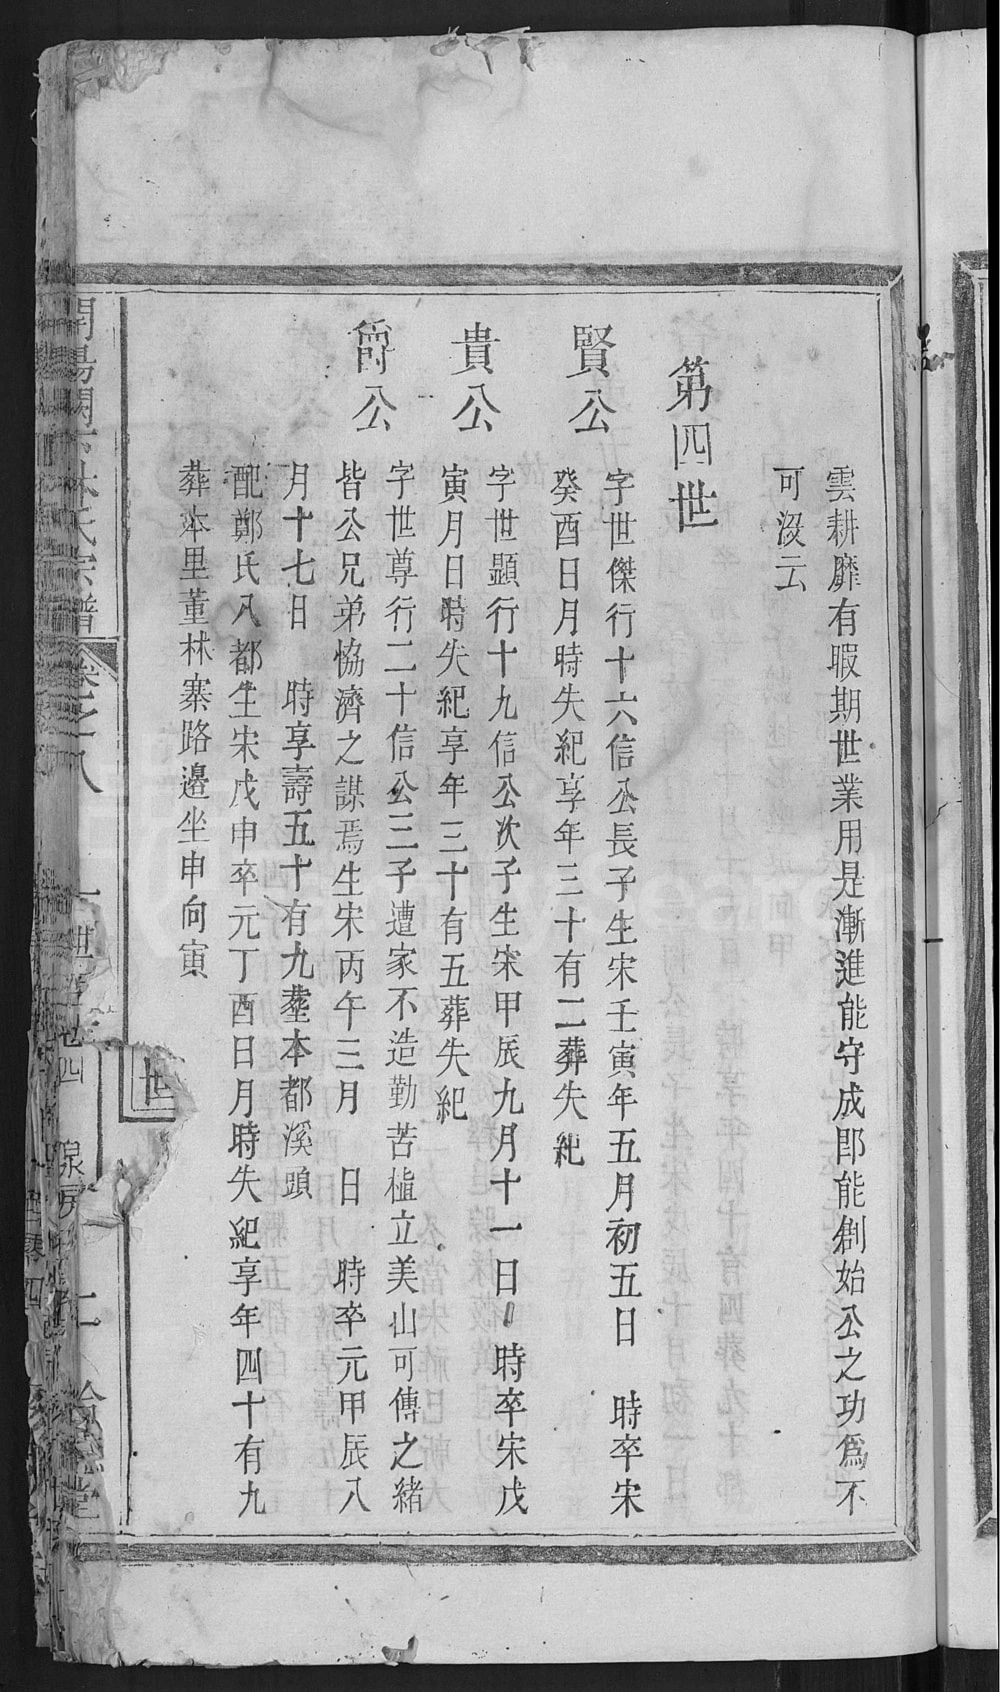 雲耕靡有暇期世業用是漸進能守成即能創始公之功爲不
可沒云
第四世
賢公
字世傑行十六信公長子生宋壬寅年五月初五日　時卒宋
癸酉日月時失紀享年三十有二葬失紀
貴公
字世顯行十九信公次子生宋甲辰九月十一日　時卒宋戊
寅月日時失紀享年三十有五葬失紀
爵公
字世尊行二十信公三子遭家不造勤苦植立美山可傳之緒
皆公兄弟恊濟之謀焉生宋丙午三月　日　時卒元甲辰八
月十七日　時享壽五十有九塟本都溪頭
配鄭氏八都生宋戊申卒元丁酉日月時失紀享年四十有九
葬本里董林寨路邉坐申向寅
宗譜
卷之八
世